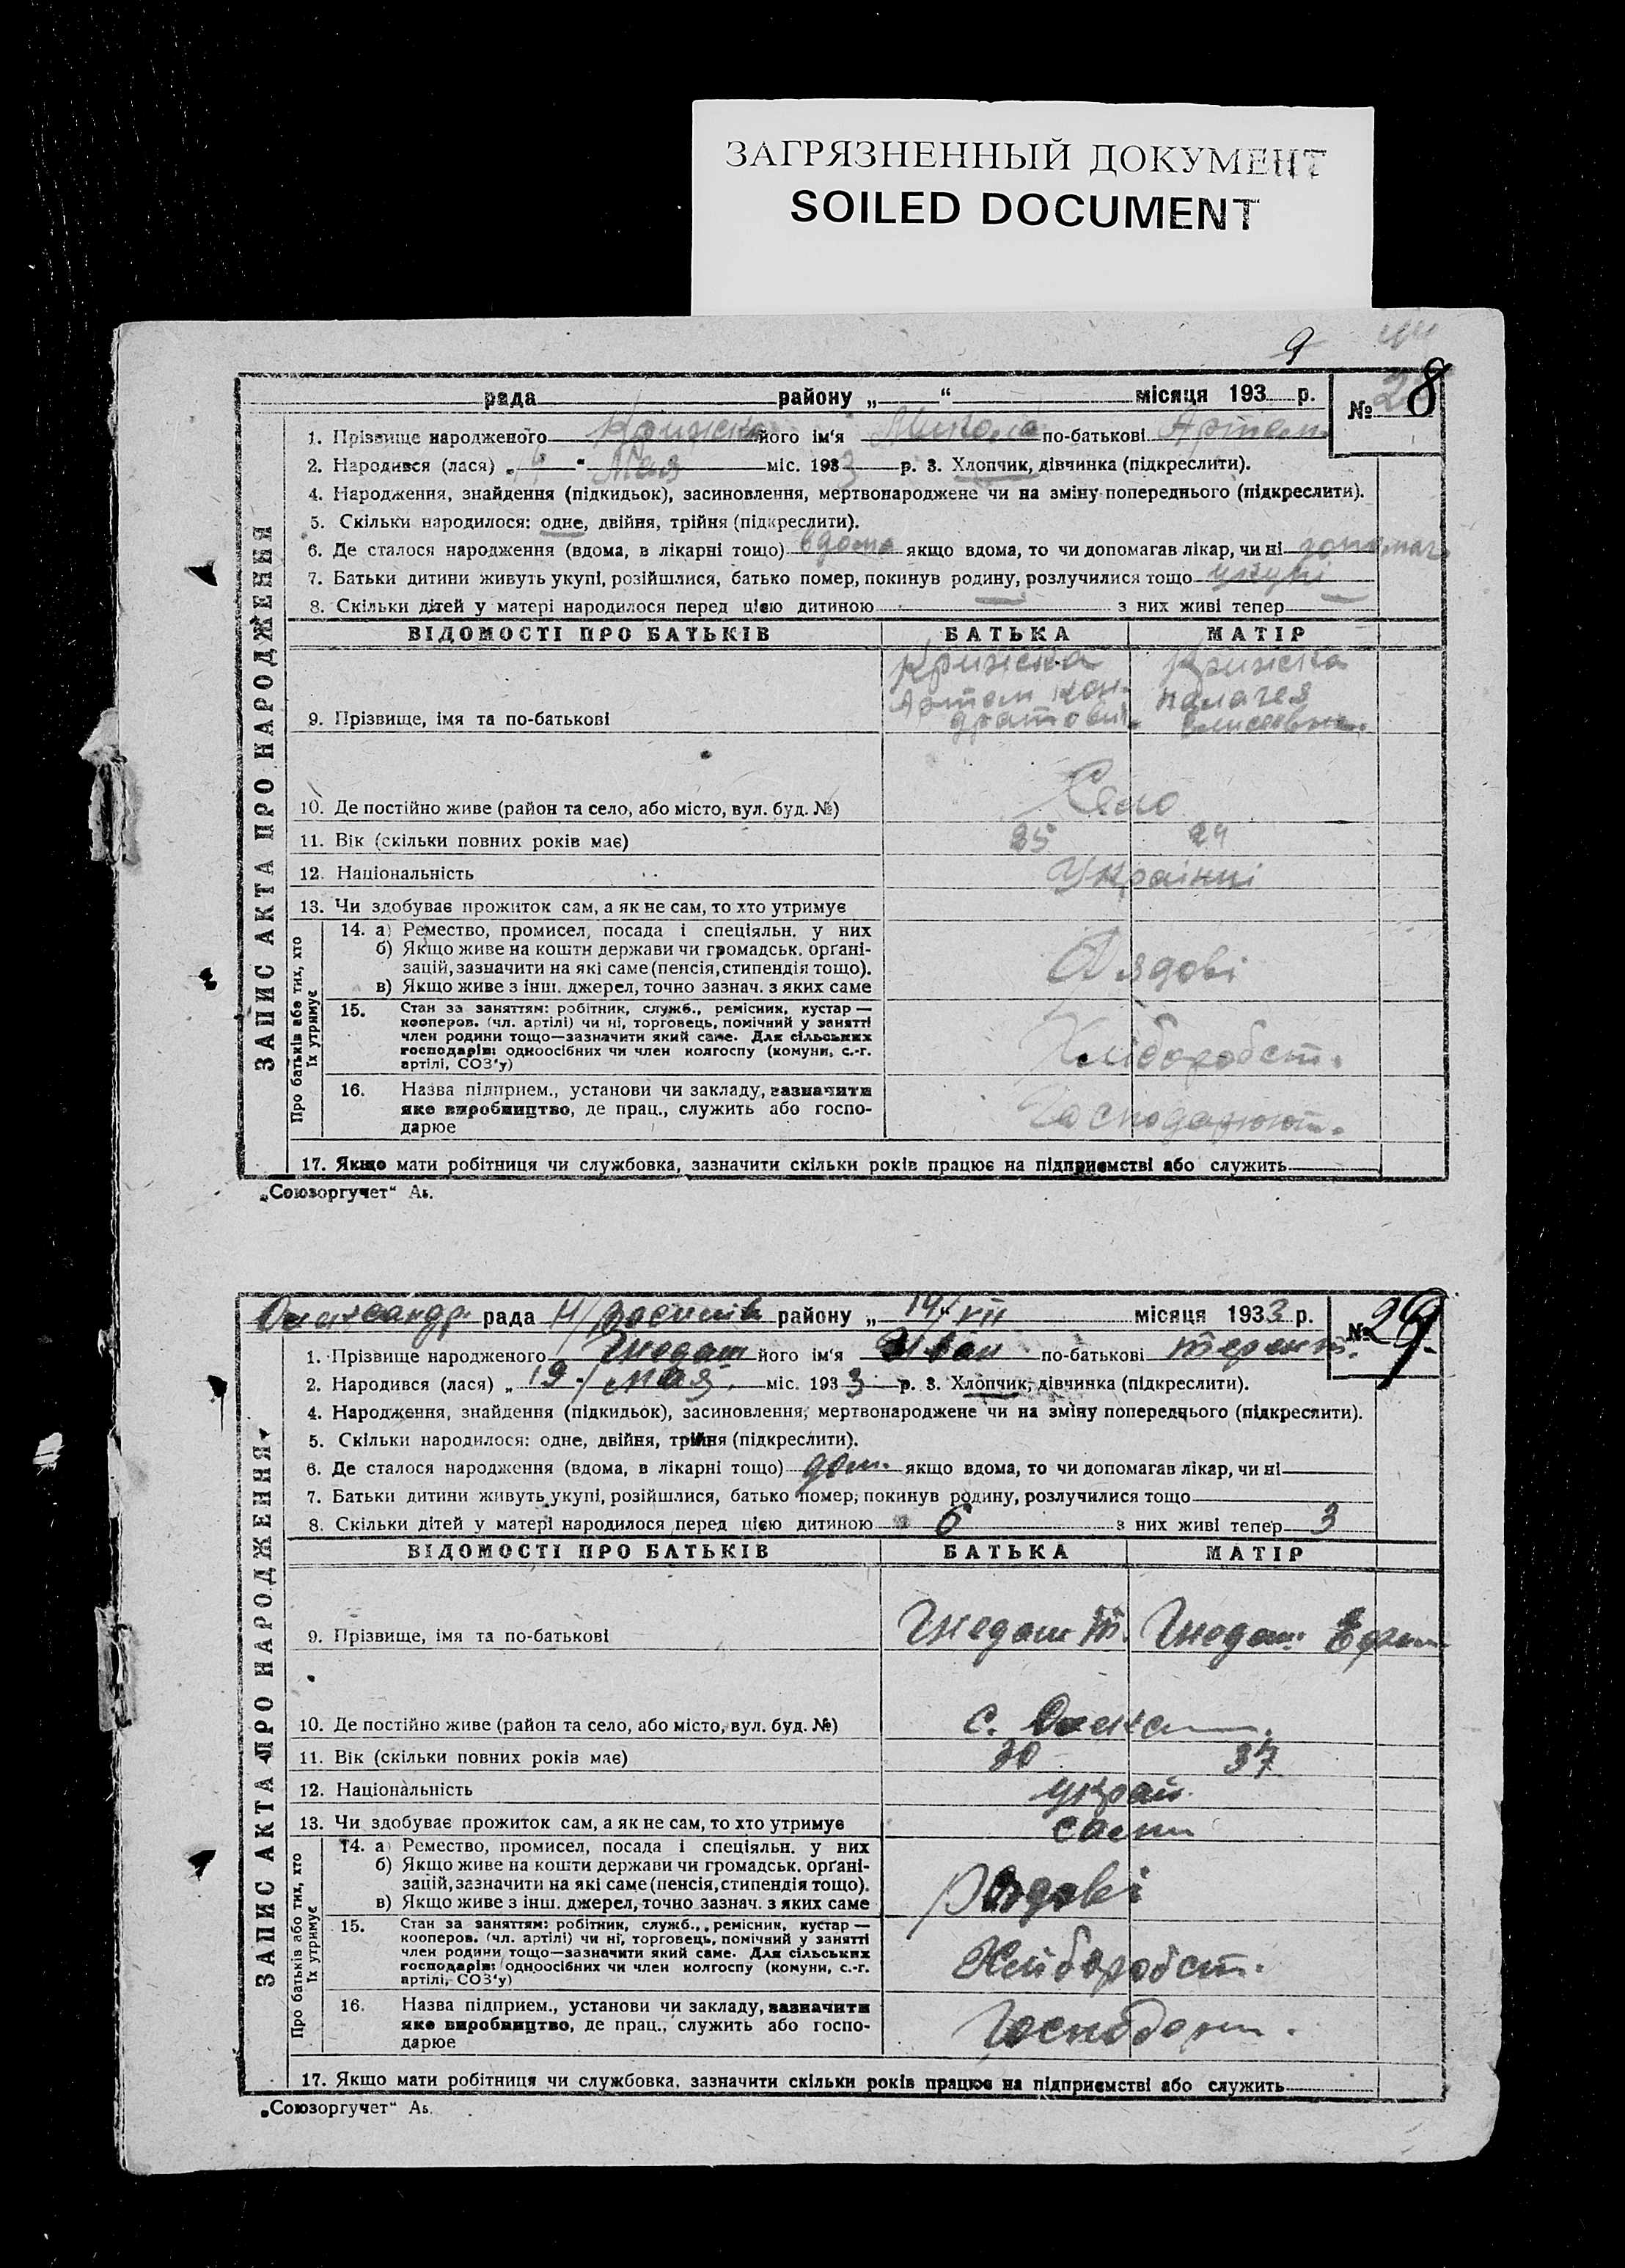 ЗАГРЯЗНЕННЫЙ ДОКУМЕНТ
SOILED DOCUMENT
9
рада района „ “ місяця 193 р. № 8
ЗАПИС АКТА ПРО НАРОДЖЕННЯ
1. Прізвище народженого його ім'я Микола по-батькові Артем.
2. Народився (лася) „ “ Мая міс. 1933 р. 3. Хлопчик, дівчинка (підкреслити).
4. Народження, знайдення (підкидьок), засиновлення, мертвонароджене чи на зміну попереднього (підкреслити).
5. Скільки народилося: одне, двійня, трійня (підкреслити).
6. Де сталося народження (вдома, в лікарні тощо) вдома якщо вдома, то чи допомагав лікар, чи ні
7. Батьки дитини живуть укупі, розійшлися, батько помер, покинув родину, розлучилися тощо укупі
8. Скільки дітей у матері народилося перед цією дитиною з них живі тепер
ВІДОМОСТІ ПРО БАТЬКІВ БАТЬКА МАТІР
9. Прізвище, імя та по-батькові
Артем Кон-
дратович
10. Де постійно живе (район та село, або місто, вул. буд. №) Село
11. Вік (скільки повних років має)
12. Національність Українці
13. Чи здобуває прожиток сам, а як не сам, то хто утримує
Про батьків або тих, хто їх утримує
14. а) Ремество, промисел, посада і спеціяльн. у них
б) Якщо живе на кошти держави чи громадськ. орґані-
зацій, зазначити на які саме (пенсія, стипендія тощо).
в) Якщо живе з інш. джерел, точно зазнач. з яких саме
Рядові
15. Стан за заняттям: робітник, служб., ремісник, кустар —
кооперов. (чл. артілі) чи ні, торговець, помічний у занятті
член родини тощо—зазначити який саме. Для сільських
господарів: одноосібних чи член колгоспу (комуни, с.-г.
артілі, СОЗ'у)
Хліборобст.
16. Назва підприєм., установи чи закладу, зазначити
яке виробництво, де прац., служить або госпо-
дарює
Господарюют.
17. Якщо мати робітниця чи службовка, зазначити скільки років працює на підприємстві або служить
„Союзоргучет“
рада району „14“ VII місяця 1933 р. № 29
ЗАПИС АКТА ПРО НАРОДЖЕННЯ
1. Прізвище народженого його ім'я Іван по-батькові Терент.
2. Народився (лася) „19 Мая міс. 1933 р. 3. Хлопчик, дівчинка (підкреслити).
4. Народження, знайдення (підкидьок), засиновлення, мертвонароджене чи на зміну попереднього (підкреслити).
5. Скільки народилося: одне, двійня, трійня (підкреслити).
6. Де сталося народження (вдома, в лікарні тощо) дом. якщо вдома, то чи допомагав лікар, чи ні
7. Батьки дитини живуть укупі, розійшлися, батько помер, покинув родину, розлучилися тощо
8. Скільки дітей у матері народилося перед цією дитиною 6 з них живі тепер 3
ВІДОМОСТІ ПРО БАТЬКІВ БАТЬКА МАТІР
9. Прізвище, імя та по-батькові
10. Де постійно живе (район та село, або місто, вул. буд. №) с.
11. Вік (скільки повних років має) 30 37
12. Національність Украй.
13. Чи здобуває прожиток сам, а як не сам, то хто утримує сами
Про батьків або тих, хто їх утримує
14. а) Ремество, промисел, посада і спеціяльн. у них
б) Якщо живе на кошти держави чи громадськ. орґані-
зацій, зазначити на які саме (пенсія, стипендія тощо).
в) Якщо живе з інш. джерел, точно зазнач. з яких саме
Рядові
15. Стан за заняттям: робітник, служб., ремісник, кустар —
кооперов. (чл. артілі) чи ні, торговець, помічний у занятті
член родини тощо—зазначити який саме. Для сільських
господарів: одноосібних чи член колгоспу (комуни, с.-г.
артілі, СОЗ'у)
Хліборобст.
16. Назва підприєм., установи чи закладу, зазначити
яке виробництво, де прац., служить або госпо-
дарює
17. Якщо мати робітниця чи службовка, зазначити скільки років працює на підприємстві або служить
„Союзоргучет“